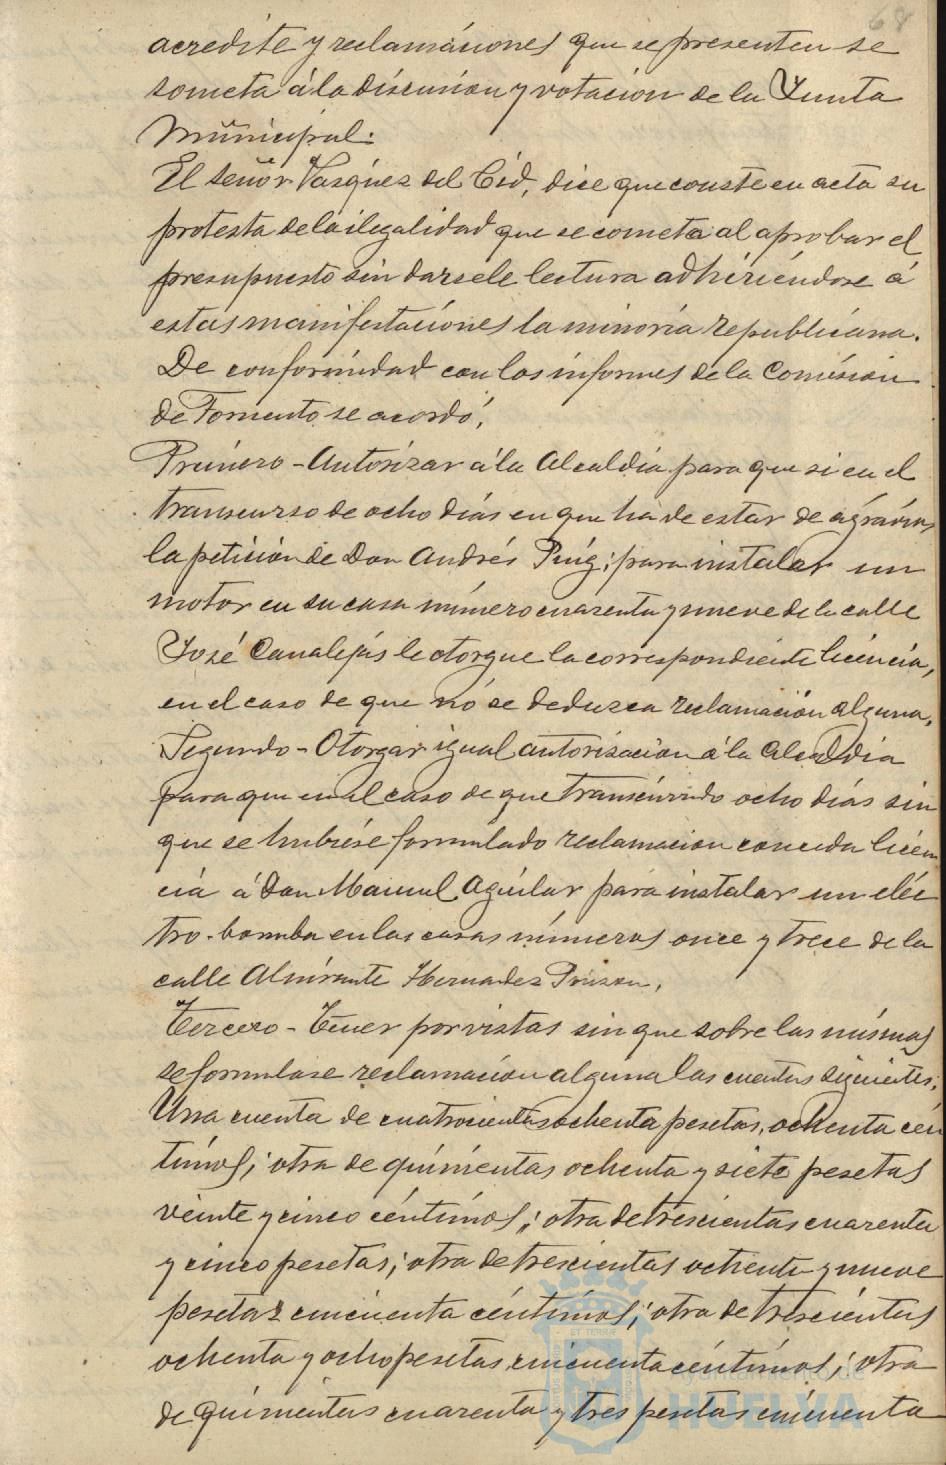 68
acredite y reclamaciones que se presenten se
someta á la discusion y votacion de la Junta
Municipal.
El señor Vasquez del Cid, dice que conste en acta su
protesta de la ilegalidad que se cometa al aprobar el
presupuesto sin darsele lectura adhiriéndose á
estas manifestaciones la minoria republicana.
De conformidad con los informes de la Comision
de Fomento se acordó,
Primero - Autorizar á la Alcaldia para que si en el
transcurso de ocho dias en que ha de estar de agravios
la peticion de Don Andrés Puig, para instalar un
motor en su casa número cuarenta y nueve de la calle
José Canalejas le otorgue la correspondiente licencia,
en el caso de que no se deduzca reclamación alguna.
Segundo - Otorgar igual autorizacion á la Alcaldia
para que en el caso de que transcurrido ocho dias sin
que se hubiese formulado reclamacion conceda licen
cia á Don Manuel Aguilar para instalar un eléc
tro-bomba en las casas números once y trece de la
calle Almirante Hernandez Pinzon.
Tercero - Tener por vistas sin que sobre las mismas
se formulase reclamacion alguna las cuentas siguientes.
Una cuenta de cuatrocientas ochenta pesetas, ochenta cén
timos; otra de quinientas ochenta y siete pesetas
veinte y cinco céntimos; otra de trescientas cuarenta
y cinco pesetas; otra de trescientas ochenta y nueve
pesetas cincuenta céntimos; otra de trescientas
ochenta y ocho pesetas cincuenta céntimos; otra
de quinientas cuarenta y tres pesetas cincuenta
Ayuntamiento de
HUELVA